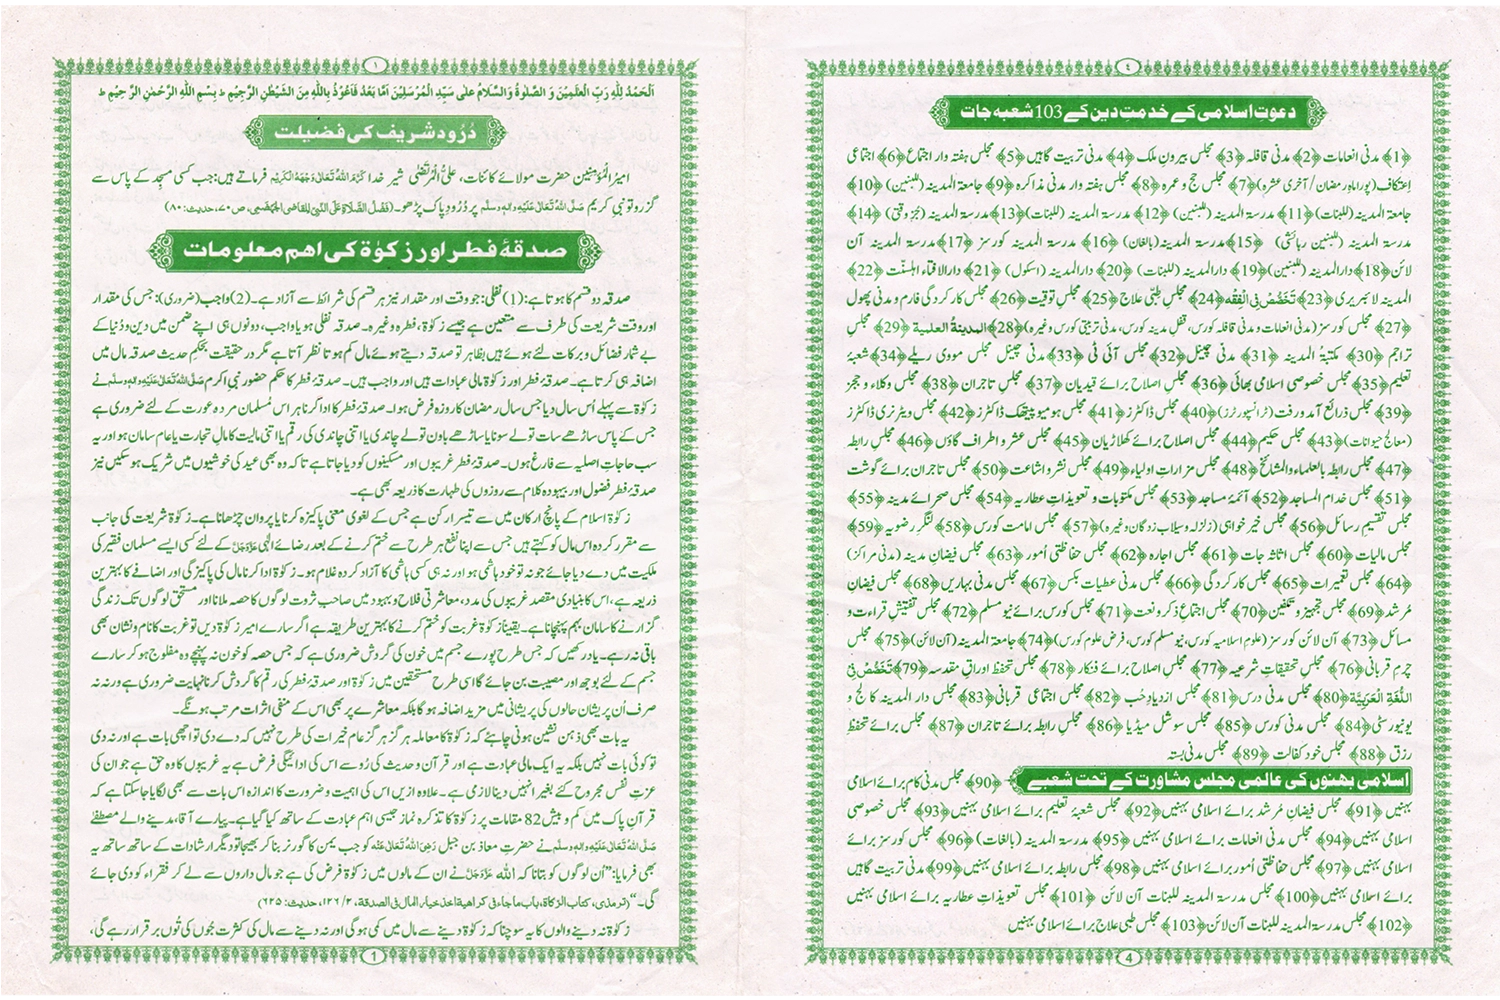 ١
اَلْحَمْدُ لِلّٰہِ رَبِّ الْعٰلَمِیْنَ وَ الصَّلٰوۃُ وَالسَّلَامُ عَلٰی سَیِّدِ الْمُرْسَلِیْنَ اَمَّا بَعْدُ فَاَعُوْذُ بِاللّٰہِ مِنَ الشَّیْطٰنِ الرَّجِیْمِ ط بِسْمِ اللّٰہِ الرَّحْمٰنِ الرَّحِیْمِ ط
دُرُود شریف کی فضیلت
امیرُالْمُؤمِنِین حضرت مولائے کائنات، علیُّ الْمُرْتَضٰی شیرِ خدا کَرَّمَ اللّٰہُ تَعَالٰی وَجْہَہُ الْکَرِیْم فرماتے ہیں: جب کسی مسجد کے پاس سے
گزرو تو نبیِ کریم صَلَّی اللّٰہُ تَعَالٰی عَلَیْہِ واٰلہٖ وسلَّم پر دُرُودِ پاک پڑھو۔ (فضل الصّلاۃ علی النّبی للقاضی الجہضمی، ص ۷۰، حدیث: ۸۰)
صدقۂ فطر اور زکوٰۃ کی اہم معلومات
صدقہ دو قسم کا ہوتا ہے: (1) نفلی: جو وقت اور مقدار نیز ہر قسم کی شرائط سے آزاد ہے۔ (2) واجب (ضروری): جس کی مقدار
اور وقت شریعت کی طرف سے متعین ہے جیسے زکوٰۃ، فطرہ وغیرہ۔ صدقہ نفلی ہو یا واجب، دونوں ہی اپنے ضمن میں دین و دُنیا کے
بے شمار فضائل و برکات لئے ہوئے ہیں بظاہر تو صدقہ دیتے ہوئے مال کم ہوتا نظر آتا ہے مگر در حقیقت بحکمِ حدیث صدقہ مال میں
اضافہ ہی کرتا ہے۔ صدقۂ فطر اور زکوٰۃ مالی عبادات ہیں اور واجب ہیں۔ صدقۂ فطر کا حکم حضور نبی اکرم صَلَّی اللّٰہُ تَعَالٰی عَلَیْہِ واٰلہٖ وسلَّم نے
زکوٰۃ سے پہلے اُس سال دیا جس سال رمضان کا روزہ فرض ہوا۔ صدقۂ فطر کا ادا کرنا ہر اس مُسلمان مرد و عورت کے لئے ضروری ہے
جس کے پاس ساڑھے سات تولے سونا یا ساڑھے باون تولے چاندی یا اتنی چاندی کی رقم یا اتنی مالیت کا مالِ تجارت یا عام سامان ہو اور یہ
سب حاجاتِ اصلیہ سے فارغ ہوں۔ صدقۂ فطر غریبوں اور مسکینوں کو دیا جاتا ہے تاکہ وہ بھی عید کی خوشیوں میں شریک ہو سکیں نیز
صدقۂ فطر فضول اور بیہودہ کلام سے روزوں کی طہارت کا ذریعہ بھی ہے۔
زکوٰۃ اسلام کے پانچ ارکان میں سے تیسرا رکن ہے جس کے لغوی معنی پاکیزہ کرنا یا پروان چڑھانا ہے۔ زکوٰۃ شریعت کی جانب
سے مقرر کردہ اس مال کو کہتے ہیں جس سے اپنا نفع ہر طرح سے ختم کرنے کے بعد رضائے الٰہی عَزَّوَجَلَّ کے لئے کسی ایسے مسلمان فقیر کی
ملکیت میں دے دیا جائے جو نہ تو خود ہاشمی ہو اور نہ ہی کسی ہاشمی کا آزاد کردہ غلام ہو۔ زکوٰۃ ادا کرنا مال کی پاکیزگی اور اضافے کا بہترین
ذریعہ ہے، اس کا بنیادی مقصد غریبوں کی مدد، معاشرتی فلاح و بہبود میں صاحبِ ثروت لوگوں کا حصہ ملانا اور مستحق لوگوں تک زندگی
گزارنے کا سامان بہم پہنچانا ہے۔ یقیناً زکوٰۃ غربت کو ختم کرنے کا بہترین طریقہ ہے اگر سارے امیر زکوٰۃ دیں تو غربت کا نام و نشان بھی
باقی نہ رہے۔ یاد رکھیں کہ جس طرح پورے جسم میں خون کی گردش ضروری ہے کہ جس حصہ کو خون نہ پہنچے وہ مفلوج ہو کر سارے
جسم کے لئے بوجھ اور مصیبت بن جائے گا اسی طرح مستحقین میں زکوٰۃ اور صدقۂ فطر کی رقم کا گردش کرنا نہایت ضروری ہے ورنہ نہ
صرف اُن پریشان حالوں کی پریشانی میں مزید اضافہ ہو گا بلکہ معاشرے پر بھی اس کے منفی اثرات مرتب ہونگے۔
یہ بات بھی ذہن نشین ہونی چاہئے کہ زکوٰۃ کا معاملہ ہرگز ہرگز عام خیرات کی طرح نہیں کہ دے دی تو اچھی بات ہے اور نہ دی
تو کوئی بات نہیں بلکہ یہ ایک مالی عبادت ہے اور قرآن و حدیث کی رُو سے اس کی ادائیگی فرض ہے یہ غریبوں کا وہ حق ہے جو ان کی
عزتِ نفس مجروح کئے بغیر انہیں دینا لازمی ہے۔ علاوہ ازیں اس کی اہمیت و ضرورت کا اندازہ اس بات سے بھی لگایا جا سکتا ہے کہ
قرآنِ پاک میں کم و بیش 82 مقامات پر زکوٰۃ کا تذکرہ نماز جیسی اہم عبادت کے ساتھ کیا گیا ہے۔ پیارے آقا، مدینے والے مصطفےٰ
صَلَّی اللّٰہُ تَعَالٰی عَلَیْہِ واٰلہٖ وسلَّم نے حضرتِ معاذ بن جبل رَضِیَ اللّٰہُ تَعَالٰی عَنْہ کو جب یمن کا گورنر بنا کر بھیجا تو دیگر ارشادات کے ساتھ ساتھ یہ
بھی فرمایا: ”اُن لوگوں کو بتانا کہ اللّٰہ عَزَّوَجَلَّ نے ان کے مالوں میں زکوٰۃ فرض کی ہے جو مال داروں سے لے کر فقراء کو دی جائے
گی۔“ (ترمذی، کتاب الزکاۃ، باب ما جاء فی کراھیۃ اخذ خیار المال فی الصدقۃ، ۲/ ۱۲۶، حدیث: ۶۲۵)
زکوٰۃ نہ دینے والوں کا یہ سوچنا کہ زکوٰۃ دینے سے مال میں کمی ہوگی اور نہ دینے سے مال کی کثرت جُوں کی تُوں برقرار رہے گی،
1
٤
دعوتِ اسلامی کے خدمتِ دین کے 103 شعبہ جات
﴿1﴾ مدنی انعامات ﴿2﴾ مدنی قافلہ ﴿3﴾ مجلس بیرونِ ملک ﴿4﴾ مدنی تربیت گاہیں ﴿5﴾ مجلس ہفتہ وار اجتماع ﴿6﴾ اجتماعی
اِعتکاف (پورا ماہِ رمضان / آخری عشرہ) ﴿7﴾ مجلس حج و عمرہ ﴿8﴾ مجلس ہفتہ وار مدنی مذاکرہ ﴿9﴾ جامعۃ المدینہ (للبنین) ﴿10﴾
جامعۃ المدینہ (للبنات) ﴿11﴾ مدرسۃ المدینہ (للبنین) ﴿12﴾ مدرسۃ المدینہ (للبنات) ﴿13﴾ مدرسۃ المدینہ (جزوقتی) ﴿14﴾
مدرسۃ المدینہ (للبنین رہائشی) ﴿15﴾ مدرسۃ المدینہ (بالغان) ﴿16﴾ مدرسۃ المدینہ کورسز ﴿17﴾ مدرسۃ المدینہ آن
لائن ﴿18﴾ دار المدینہ (للبنین) ﴿19﴾ دار المدینہ (للبنات) ﴿20﴾ دار المدینہ (اسکول) ﴿21﴾ دار الافتاء اہلسنّت ﴿22﴾
المدینہ لائبریری ﴿23﴾ تَخَصُّص فِی الْفِقْہ ﴿24﴾ مجلس طبّی علاج ﴿25﴾ مجلس توقیت ﴿26﴾ مجلس کارکردگی فارم و مدنی پھول
﴿27﴾ مجلس کورسز (مدنی انعامات و مدنی قافلہ کورس، قفلِ مدینہ کورس، مدنی تربیتی کورس وغیرہ) ﴿28﴾ المدینۃ العلمیۃ ﴿29﴾ مجلس
تراجم ﴿30﴾ مکتبۃ المدینہ ﴿31﴾ مدنی چینل ﴿32﴾ مجلس آئی ٹی ﴿33﴾ مدنی چینل مجلس مووی ریلے ﴿34﴾ شعبۂ
تعلیم ﴿35﴾ مجلس خصوصی اسلامی بھائی ﴿36﴾ مجلس اصلاح برائے قیدیان ﴿37﴾ مجلس تاجران ﴿38﴾ مجلس وکلاء و ججز
﴿39﴾ مجلس ذرائع آمد و رفت (ٹرانسپورٹرز) ﴿40﴾ مجلس ڈاکٹرز ﴿41﴾ مجلس ہومیوپیتھک ڈاکٹرز ﴿42﴾ مجلس ویٹرنری ڈاکٹرز
(معالجِ حیوانات) ﴿43﴾ مجلس حکیم ﴿44﴾ مجلس اصلاح برائے کھلاڑیان ﴿45﴾ مجلس عشر و اطراف گاؤں ﴿46﴾ مجلس رابطہ
﴿47﴾ مجلس رابطہ بالعلماء و المشائخ ﴿48﴾ مجلس مزاراتِ اولیاء ﴿49﴾ مجلس نشر و اشاعت ﴿50﴾ مجلس تاجران برائے گوشت
﴿51﴾ مجلس خدام المساجد ﴿52﴾ آئمۂ مساجد ﴿53﴾ مجلس مکتوبات و تعویذاتِ عطاریہ ﴿54﴾ مجلس صحرائے مدینہ ﴿55﴾
مجلس تقسیمِ رسائل ﴿56﴾ مجلس خیر خواہی (زلزلہ و سیلاب زدگان وغیرہ) ﴿57﴾ مجلس امامت کورس ﴿58﴾ لنگرِ رضویہ ﴿59﴾
مجلس مالیات ﴿60﴾ مجلس اثاثہ جات ﴿61﴾ مجلس اجارہ ﴿62﴾ مجلس حفاظتی اُمور ﴿63﴾ مجلس فیضانِ مدینہ (مدنی مراکز)
﴿64﴾ مجلس تعمیرات ﴿65﴾ مجلس کارکردگی ﴿66﴾ مجلس مدنی عطیات بکس ﴿67﴾ مجلس مدنی بہاریں ﴿68﴾ مجلس فیضانِ
مُرشد ﴿69﴾ مجلس تجہیز و تکفین ﴿70﴾ مجلس اجتماعِ ذکر و نعت ﴿71﴾ مجلس کورس برائے نیو مسلم ﴿72﴾ مجلس تفتیشِ قراءت و
مسائل ﴿73﴾ آن لائن کورسز (علومِ اسلامیہ کورس، نیو مسلم کورس، فرض علوم کورس) ﴿74﴾ جامعۃ المدینہ (آن لائن) ﴿75﴾ مجلس
چرمِ قربانی ﴿76﴾ مجلس تحقیقاتِ شرعیہ ﴿77﴾ مجلس اصلاح برائے فنکار ﴿78﴾ مجلس تحفظِ اوراقِ مقدسہ ﴿79﴾ تَخَصُّص فِی
اللُّغَۃِ الْعَرَبِیَّۃ ﴿80﴾ مجلس مدنی درس ﴿81﴾ مجلس ازدیادِ حُب ﴿82﴾ مجلس اجتماعی قربانی ﴿83﴾ مجلس دار المدینہ کالج و
یونیورسٹی ﴿84﴾ مجلس مدنی کورس ﴿85﴾ مجلس سوشل میڈیا ﴿86﴾ مجلس رابطہ برائے تاجران ﴿87﴾ مجلس برائے تحفظِ
رزق ﴿88﴾ مجلس خود کفالت ﴿89﴾ مجلس مدنی بستہ
اسلامی بہنوں کی عالمی مجلس مشاورت کے تحت شعبے ﴿90﴾ مجلس مدنی کام برائے اسلامی
بہنیں ﴿91﴾ مجلس فیضانِ مُرشد برائے اسلامی بہنیں ﴿92﴾ مجلس شعبۂ تعلیم برائے اسلامی بہنیں ﴿93﴾ مجلس خصوصی
اسلامی بہنیں ﴿94﴾ مجلس مدنی انعامات برائے اسلامی بہنیں ﴿95﴾ مدرسۃ المدینہ (بالغات) ﴿96﴾ مجلس کورسز برائے
اسلامی بہنیں ﴿97﴾ مجلس حفاظتی اُمور برائے اسلامی بہنیں ﴿98﴾ مجلس رابطہ برائے اسلامی بہنیں ﴿99﴾ مدنی تربیت گاہیں
برائے اسلامی بہنیں ﴿100﴾ مجلس مدرسۃ المدینہ للبنات آن لائن ﴿101﴾ مجلس تعویذاتِ عطاریہ برائے اسلامی بہنیں
﴿102﴾ مجلس مدرسۃ المدینہ للبنات آن لائن ﴿103﴾ مجلس طبی علاج برائے اسلامی بہنیں
4